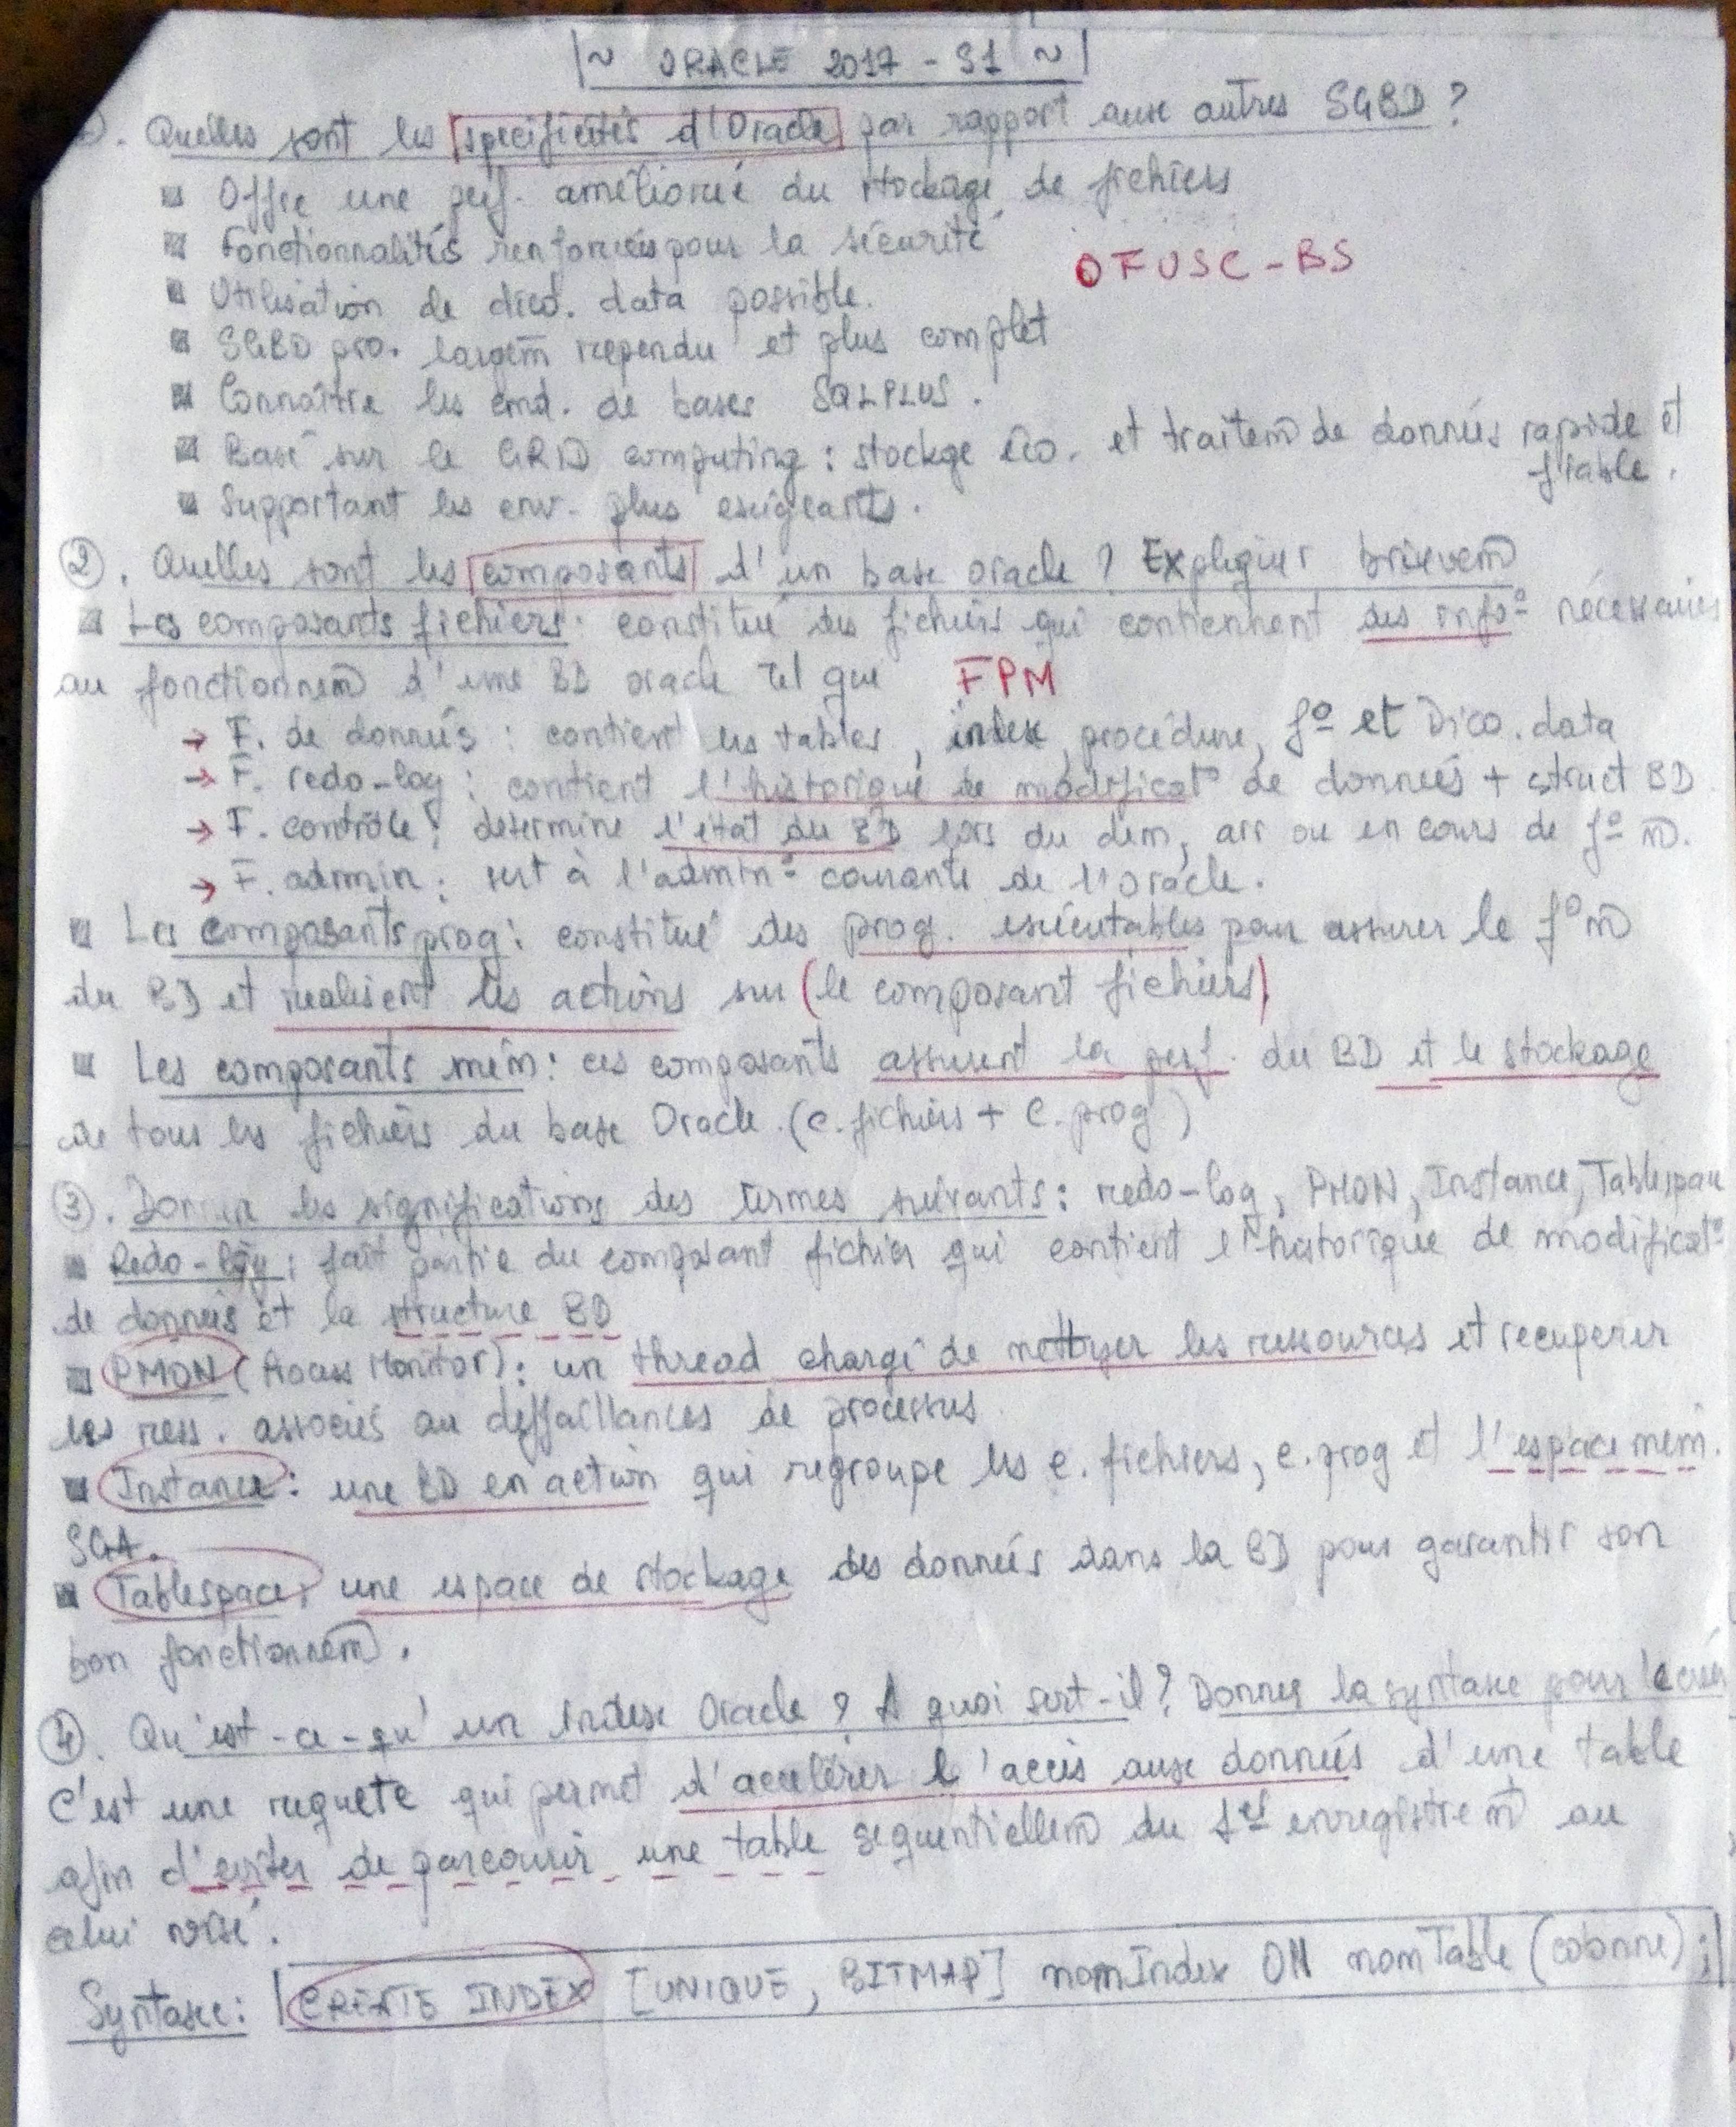 ~ ORACLE 2017 - S1 ~
. Quelles sont les spécificités d'Oracle par rapport aux autres SGBD ?
Offre une perf. améliorée du stockage de fichiers
Fonctionnalités renforcées pour la sécurité
OFUSC-BS
Utilisation de dico. data possible.
SGBD pro. largem̄ rependu et plus complet
Connaître les cmd. de bases SQLPLUS.
Basé sur le GRID computing : stockge éco. et traitem̄ de données rapide et
fiable.
Supportant les env. plus exigeants.
②. Quelles sont les composants d'un base oracle ? Expliquer brièvem̄
Les composants fichiers : constitué des fichiers qui contiennent des info° nécessaires
au fonctionnem̄ d'une BD oracle tel que FPM
→ F. de données : contient les tables, index, procédure, f° et Dico. data
→ F. redo-log : contient l'historique de modificat° de données + struct BD
→ F. contrôle : determine l'état du BD lors du dém, arr ou en cours de f° m̄.
→ F. admin : sert à l'admin° courante de l'oracle.
Les composants prog : constitué des prog. exécutables pour assurer le f° m̄
du BD et realisent les actions sur (le composant fichiers)
Les composants mém : ces composants assurent la perf. du BD et le stockage
de tous les fichiers du base Oracle. (c. fichiers + c. prog)
③. Donner les significations des termes suivants : redo-log, PMON, Instance, Tablespace
Redo-log : fait partie du composant fichier qui contient l'historique de modificat°
de données et la structure BD
PMON (Process Monitor) : un thread chargé de nettoyer les ressources et recuperer
les ress. associés au deffaillances de processus
Instance : une BD en action qui regroupe les c. fichiers, c. prog et l'espace mém.
SGA.
Tablespace : une espace de stockage des données dans la BD pour garantir son
bon fonctionnem̄.
④. Qu'est-ce-qu'un Index Oracle ? A quoi sert-il ? Donner la syntaxe pour le créer
C'est une requete qui permet d'accelérer l'accès aux données d'une table
afin d'eviter de parcourir une table sequentiellem̄ du 1er enregistrem̄ au
celui visé.
Syntaxe : CREATE INDEX [UNIQUE, BITMAP] nomIndex ON nomTable (colonne) ;